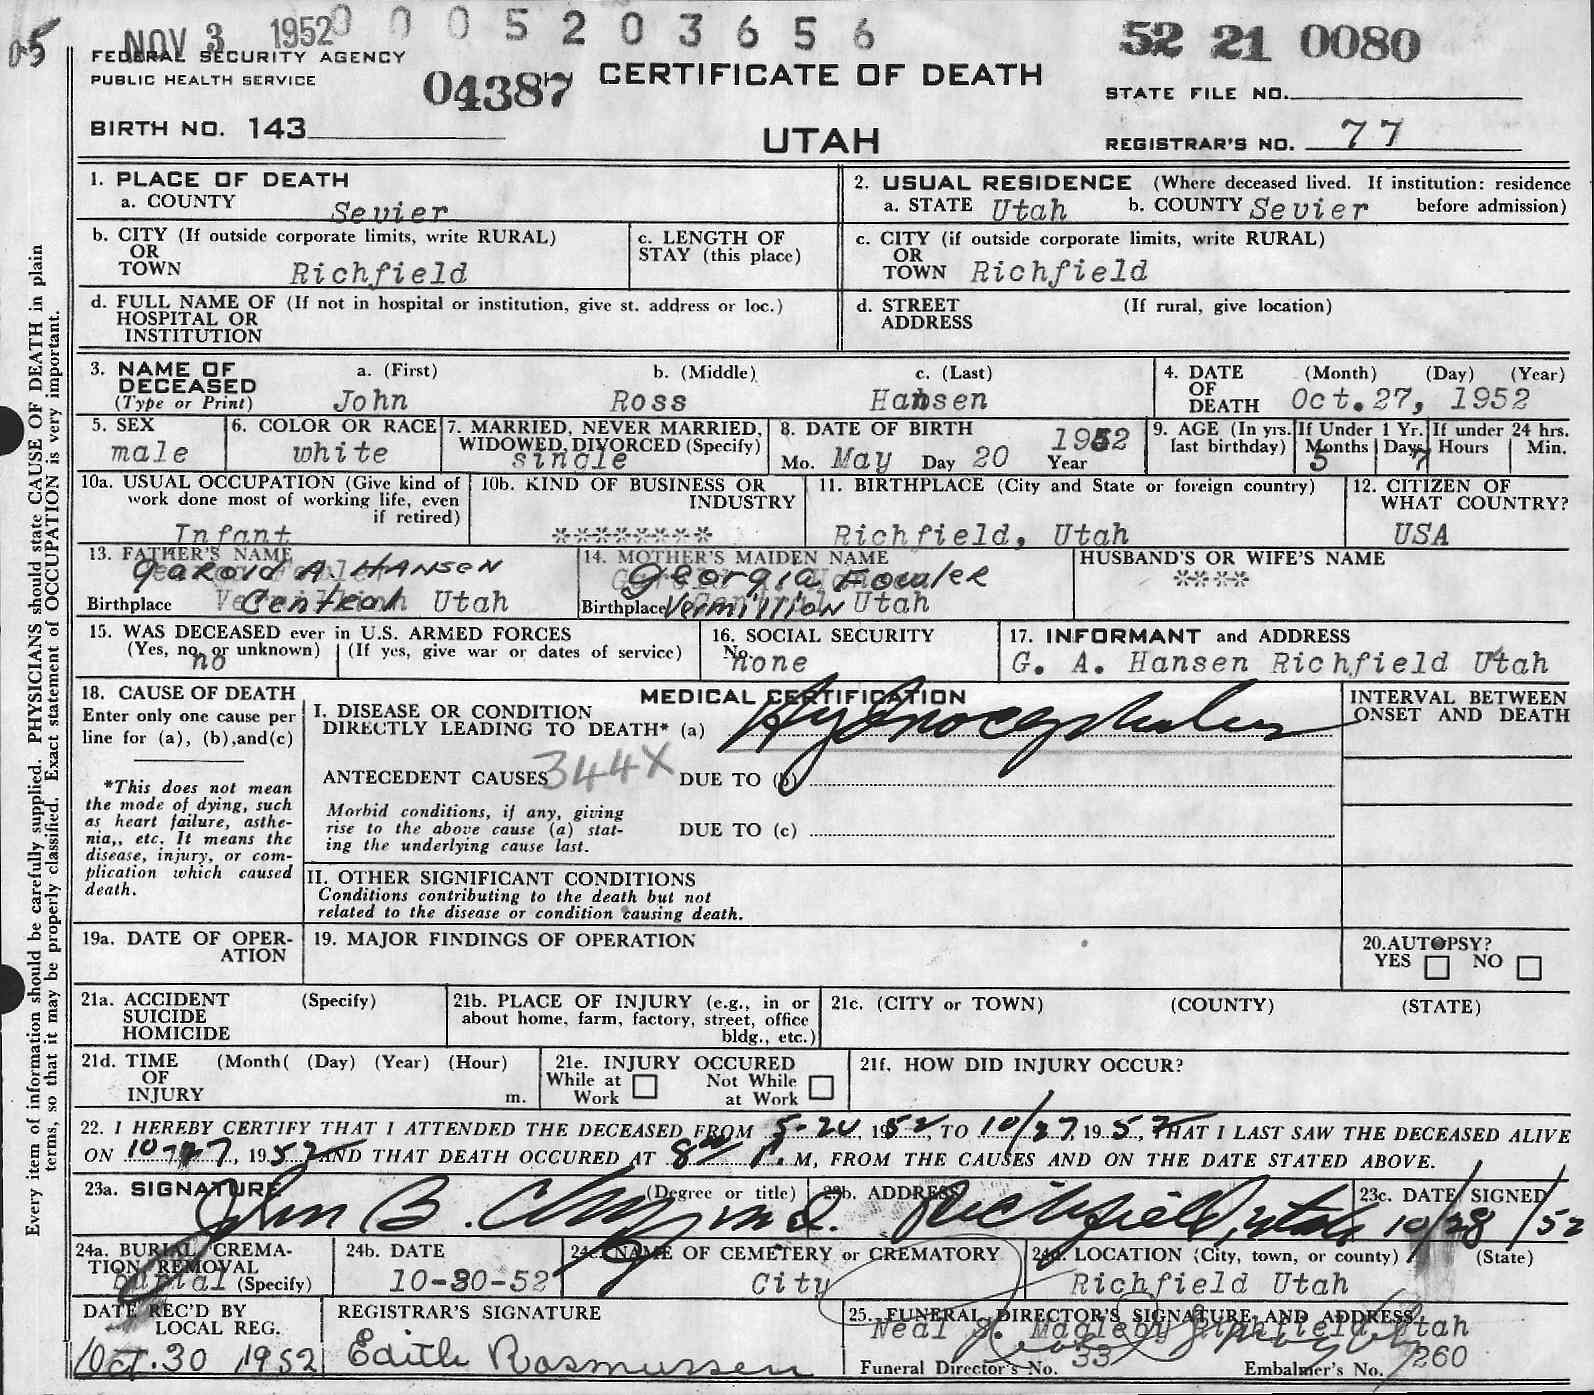 05
NOV 3 1952
0 0 0 5 2 0 3 6 5 6
52 21 0080
FEDERAL SECURITY AGENCY
PUBLIC HEALTH SERVICE
04387
CERTIFICATE OF DEATH
STATE FILE NO.
BIRTH NO. 143
UTAH
REGISTRAR'S NO. 77
Every item of information should be carefully supplied. PHYSICIANS should state CAUSE OF DEATH in plain
terms, so that it may be properly classified. Exact statement of OCCUPATION is very important.
1. PLACE OF DEATH
a. COUNTY Sevier
2. USUAL RESIDENCE (Where deceased lived. If institution: residence
a. STATE Utah b. COUNTY Sevier before admission)
b. CITY (If outside corporate limits, write RURAL)
OR
TOWN Richfield
c. LENGTH OF
STAY (this place)
c. CITY (if outside corporate limits, write RURAL)
OR
TOWN Richfield
d. FULL NAME OF (If not in hospital or institution, give st. address or loc.)
HOSPITAL OR
INSTITUTION
d. STREET (If rural, give location)
ADDRESS
3. NAME OF a. (First) b. (Middle) c. (Last)
DECEASED
(Type or Print) John Ross Hansen
4. DATE (Month) (Day) (Year)
OF
DEATH Oct. 27, 1952
5. SEX
male
6. COLOR OR RACE
white
7. MARRIED, NEVER MARRIED,
WIDOWED, DIVORCED (Specify)
single
8. DATE OF BIRTH 1952
Mo. May Day 20 Year
9. AGE (In yrs. If Under 1 Yr. If under 24 hrs.
last birthday) Months Days Hours Min.
5 7
10a. USUAL OCCUPATION (Give kind of
work done most of working life, even
if retired)
Infant
10b. KIND OF BUSINESS OR
INDUSTRY
********
11. BIRTHPLACE (City and State or foreign country)
Richfield, Utah
12. CITIZEN OF
WHAT COUNTRY?
USA
13. FATHER'S NAME
Garold A. HANSEN
Birthplace Central Utah
14. MOTHER'S MAIDEN NAME
Georgia Fowler
Birthplace Vermillion Utah
HUSBAND'S OR WIFE'S NAME
****
15. WAS DECEASED ever in U.S. ARMED FORCES
(Yes, no, or unknown) (If yes, give war or dates of service)
no
16. SOCIAL SECURITY
No.
none
17. INFORMANT and ADDRESS
G. A. Hansen Richfield Utah
18. CAUSE OF DEATH
Enter only one cause per
line for (a), (b), and (c)
*This does not mean
the mode of dying, such
as heart failure, asthe-
nia,, etc. It means the
disease, injury, or com-
plication which caused
death.
MEDICAL CERTIFICATION
I. DISEASE OR CONDITION
DIRECTLY LEADING TO DEATH* (a) Hydrocephalus
ANTECEDENT CAUSES 344X DUE TO (b)
Morbid conditions, if any, giving
rise to the above cause (a) stat-
ing the underlying cause last.
DUE TO (c)
II. OTHER SIGNIFICANT CONDITIONS
Conditions contributing to the death but not
related to the disease or condition causing death.
INTERVAL BETWEEN
ONSET AND DEATH
19a. DATE OF OPER-
ATION
19. MAJOR FINDINGS OF OPERATION
20. AUTOPSY?
YES NO
21a. ACCIDENT (Specify)
SUICIDE
HOMICIDE
21b. PLACE OF INJURY (e.g., in or
about home, farm, factory, street, office
bldg., etc.)
21c. (CITY or TOWN) (COUNTY) (STATE)
21d. TIME (Month( (Day) (Year) (Hour)
OF
INJURY m.
21e. INJURY OCCURED
While at Not While
Work at Work
21f. HOW DID INJURY OCCUR?
22. I HEREBY CERTIFY THAT I ATTENDED THE DECEASED FROM 5-20, 1952, TO 10/27, 1952, THAT I LAST SAW THE DECEASED ALIVE
ON 10-27, 1952 AND THAT DEATH OCCURED AT 8 P. M, FROM THE CAUSES AND ON THE DATE STATED ABOVE.
23a. SIGNATURE (Degree or title)
John B. m.d.
23b. ADDRESS
Richfield, Utah
23c. DATE SIGNED
10/28/52
24a. BURIAL, CREMA-
TION, REMOVAL
(Specify)
burial
24b. DATE
10-30-52
24c. NAME OF CEMETERY or CREMATORY
City
24d. LOCATION (City, town, or county) (State)
Richfield Utah
DATE REC'D BY
LOCAL REG.
Oct. 30, 1952
REGISTRAR'S SIGNATURE
Edith Rasmussen
25. FUNERAL DIRECTOR'S SIGNATURE AND ADDRESS
Neal J. Magleby Richfield, Utah
Funeral Director's No. 33 Embalmer's No. 260